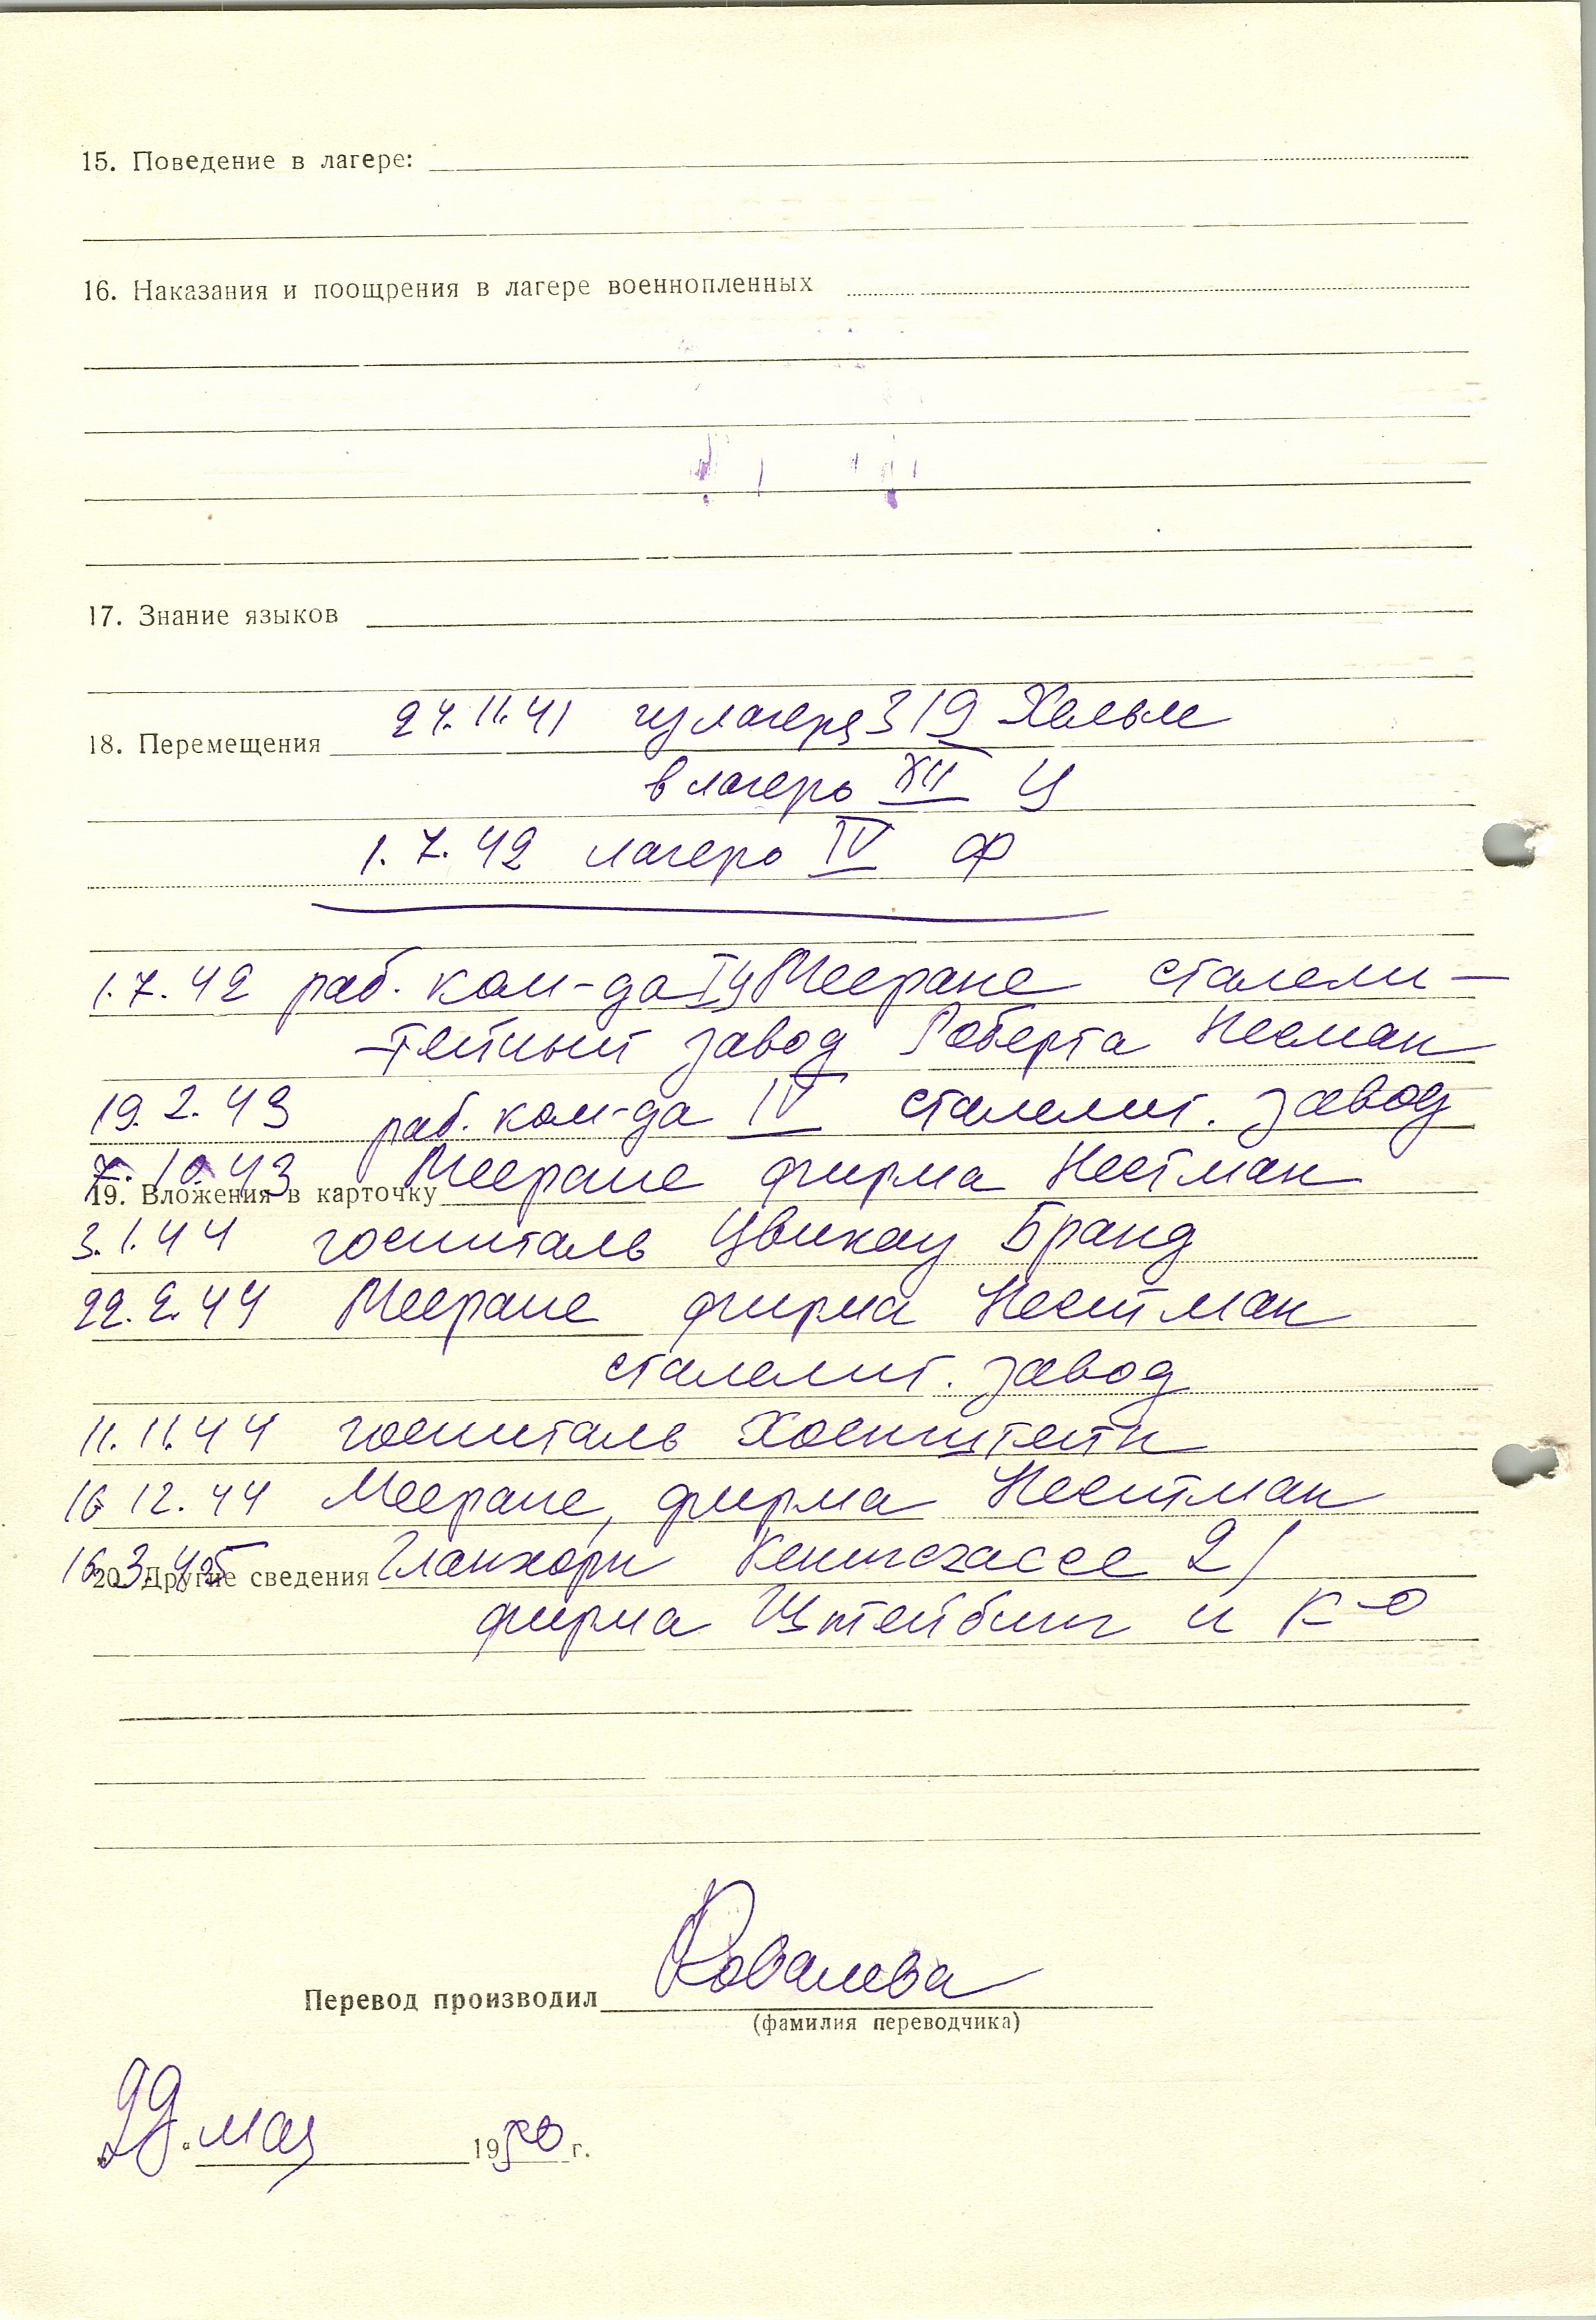 15. Поведение в лагере:
16. Наказания и поощрения в лагере военнопленных
17. Знание языков
24. 11. 41 из лагеря 319 Хельм
18. Перемещения
в лагерь XII Ц
1. 7. 42 лагерь IV Ф
1. 7. 42 раб. ком-да Мееране сталели-
-тейный завод Роберта
19. 2. 43 раб. ком-да IV сталелит. завод
7. 10 43 Мееране фирма Нестман
19. Вложения в карточку
3. 1. 44 госпиталь Цвикау Бранд
22. 2. 44 Мееране фирма Нестман
сталелит. завод
11. 11. 44 госпиталь Хоенштейн
16 12. 44 Мееране, фирма Нестман
16. 3. 45 Кенигсгассе 21
20. Другие сведения
фирма Штейбинг и К-о
Перевод производил Ковалева
(фамилия переводчика)
29 мая 1950 г.